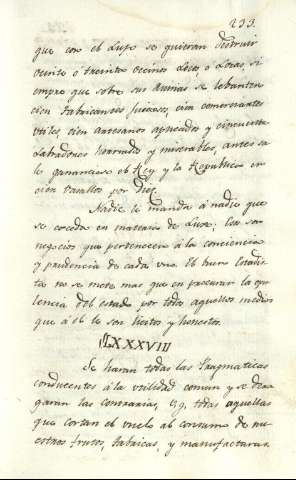 233.
que con el Luxo se quieran destruir
veinte o treinta vecinos Locos, o Locas, si
empre que sobre sus ruinas se lebanten
cien fabricantes , cien comerciantes
utiles, cien artesanos aplicados y cincuenta
Labradores honrrados y miserables, antes sa
le ganancioso el Rey y la Republica en
cien vasallos por Diez.
Nadie le manda à nadie que
se exceda en materia de Luxo; Esos son
negocios que pertenecen à la conciencia
y prudencia de cada uno. El buen Estadis
ta no se mete mas que en procurar la opu
lencia del estado por todos aquellos medios
que à el le son licitos y honestos.
LXXXVIII
Se haran todas las Pragmaticas
conducentes à la utilidad comun y se dero
garan las contrarias, todas aquellas
que cortan el vuelo al consumo de nu
estros frutos, fabricas, y manufacturas